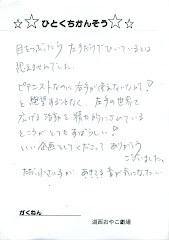 ☆☆ひとくちかんそう☆☆
目をつぶったら 左手だけでひいているとは
思えませんでした。
ピアニストなのに右手が使えないなんて!
と絶望することなく、左手の世界を
広げる活動を精力的にされている
ところがとてもすばらしい!
いい企画をしてくださって ありがとう
ございました。
ただ小さい子が あきてる 姿が気になった…
がくねん
道西おやこ劇場